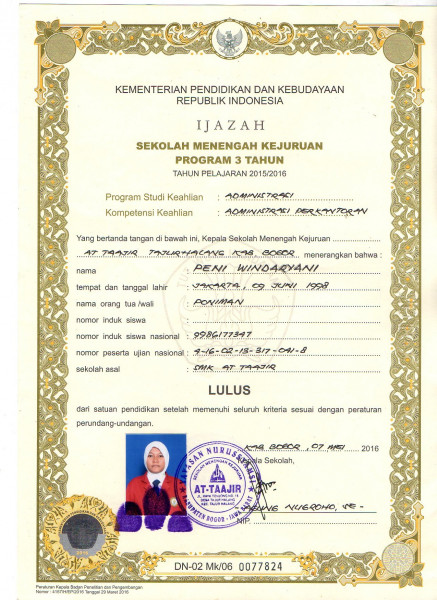 KEMENTERIAN PENDIDIKAN DAN KEBUDAYAAN
REPUBLIK INDONESIA
IJAZAH
SEKOLAH MENENGAH KEJURUAN
PROGRAM 3 TAHUN
TAHUN PELAJARAN 2015/2016
Program Studi Keahlian : ADMINISTRASI
Kompetensi Keahlian : ADMINISTRASI PERKANTORAN
Yang bertanda tangan di bawah ini, Kepala Sekolah Menengah Kejuruan
AT TAAJIR TAJURHALANG KAB BOGOR menerangkan bahwa :
nama : PENI WINDARYANI
tempat dan tanggal lahir : JAKARTA, 09 JUNI 1998
nama orang tua/wali : PONIMAN
nomor induk siswa :
nomor induk siswa nasional : 9986177347
nomor peserta ujian nasional : 4-16-02-13-317-041-8
sekolah asal : SMK AT TAAJIR
LULUS
dari satuan pendidikan setelah memenuhi seluruh kriteria sesuai dengan peraturan
perundang-undangan.
KAB BOGOR, 07 MEI 2016
Kepala Sekolah,
YAYASAN NURUSSYAMSI
SEKOLAH MENENGAH KEJURUAN
AT-TAAJIR
KABUPATEN BOGOR - JAWA BARAT
NUGROHO, SE
NIP.
DN-02 Mk/06 0077824
Peraturan Kepala Badan Penelitian dan Pengembangan
Tanggal 29 Maret 2016